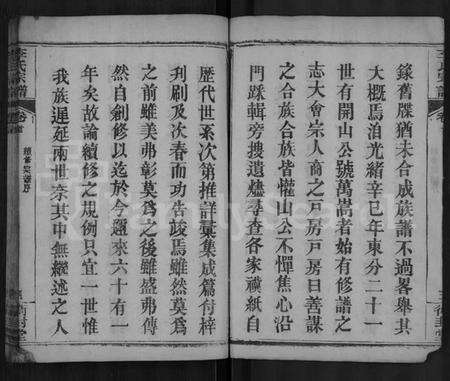 錄舊牒猶未合成族譜不過畧舉其
大概焉洎光緒辛巳年東分二十一
世有開山公號萬嵩者始有修譜之
志大會宗人商之戸房戸房曰善謀
之合族合族皆懽山公不憚焦心沿
門踩輯旁搜遺燼尋查各家禩紙自
歷代世系次第推詳彙集成篇付梓
刋刷及次春而功告竣焉雖然莫爲
之前雖美弗彰莫爲之後雖盛弗傳
然自創修以迄於今邇來六十有一
年矣故論續修之規例只宜一世惟
我族遅延兩世奈其中無繼述之人
李氏宗譜
續修宗譜序